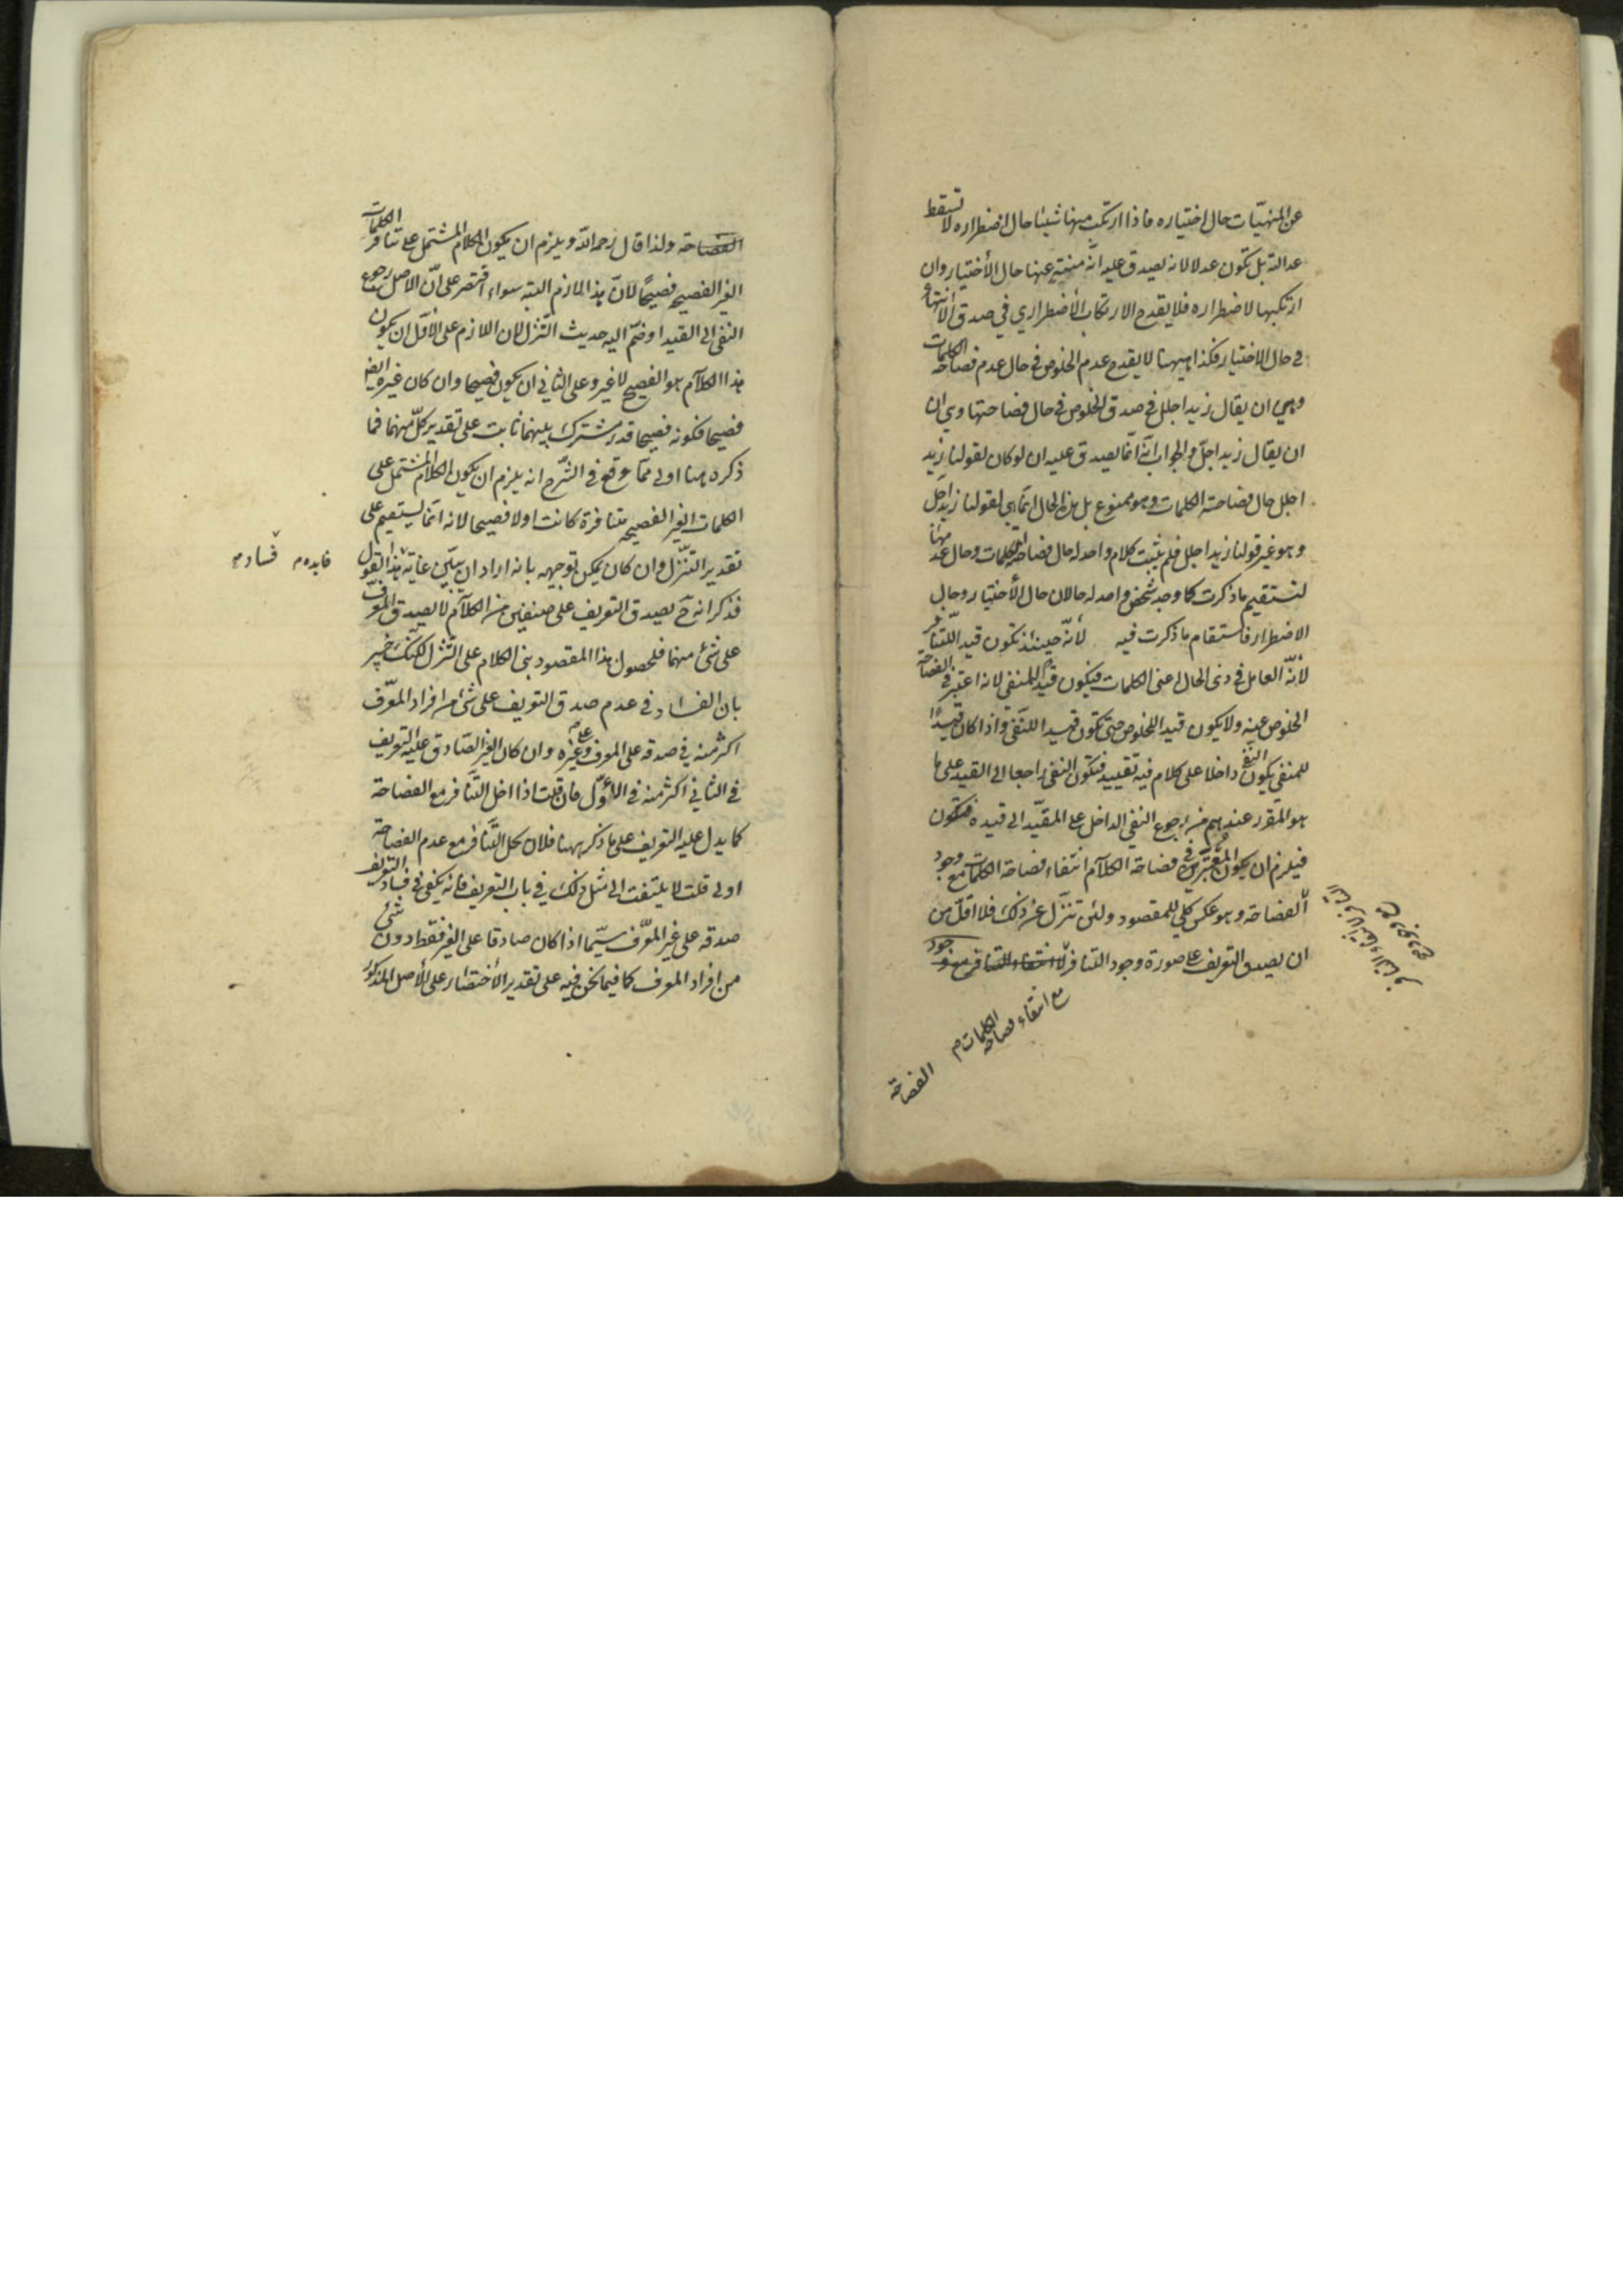 عن المنهيّات حال اختياره فاذا ارتكب منها شيئا حال اضطراره لا تسقط
عدالته بل تكون عدلا لانه يصدق عليه انّه منتهٍ عنها حال الأختيار وان
ارتكبها لاضطراره فلا يقدح الارتكاب الأضطراري في صدق الأنتهاء
في حال الاختيار فكذا ههنا لا يقدح عدم الخلوص في حال عدم فصاحة الكلمات
وهي ان يقال زيد اجلل في صدق الخلوص في حال فصاحتها وهي ان
ان يقال زيد اجلّ والجواب انّه انّما يصدق عليه ان لو كان لقولنا زيد
اجلل حال فصاحة الكلمات وهو ممنوع بل هذا الحال انّما هي لقولنا زيد اجلّ
وهو غير قولنا زيد اجلل فلم يثبت كلام واحد له حال فصاحة الكلمات وحال عدمها
لنستقيم ما ذكرت كما وجد شخص واحد له حالان حال الأختيار وحال
الاضطرار فاستقام ما ذكرت فيه لأنّه حينئذ تكون قيد اللتنافر
لأنّه العامل في ذى الحال اعنى الكلمات فيكون قيدا للمنفى لانه اعتبر في الفصاحة
الخلوص عنه ولا يكون قيدا للخلوص حتى تكون قيدا للنّفى واذا كان قيدًا
للمنفى يكون النفى داخلا على كلام فيه تقييد فتكون النفى راجعا الى القيد على ما
هو المقرر عندهم من رجوع النفى الداخل على المقيّد الى قيده فتكون
فيلزم ان يكون المعتبر في فصاحة الكلام انتفاء فصاحة الكلمات مع وجود
الفصاحة وهو عكس كلي للمقصود ولئن تنزّل عن ذلك فلا اقلّ من
ان يصدق التعريف على صورة وجود التنافر لا انتفاء التنافر مع وجود
مع انتفاء فصاحة الكلمات م
الفصاحة
الفصاحة ولذا قال رحمه اللّه ويلزم ان يكون الكلام المشتمل على تنافر الكلمات
الغير الفصيحة فصيحًا لانّ هذا لازم البته سواء اقتصر على انّ الاصل رجوع
النفى الى القيد او ضمّ اليه حديث التّنزل لان اللازم على الأوّل ان يكون
هذا الكلام هو الفصيح لا غير وعلى الثاني ان يكون فصيحا وان كان غيره ايضا
فصيحا فكونه فصيحا قدر مشترك بينهما ثابت على تقدير كلّ منهما فما
ذكره هنا اولى ممّا وقع في الشّرح انه يلزم ان يكون الكلام المشتمل على
الكلمات الغير الفصيحة متنافرة كانت اولا فصيحا لانه انّما يستقيم على
تقدير التنزّل وان كان يمكن توجيهه بانه اراد ان يبيّن غاية هذا القول
فايده م فساد م
فذكر انه ح يصدق التعريف على صنفين من الكلام لا يصدق المعرّف
على شئ منهما فلحصول هذا المقصود بنى الكلام على التنزّل لكنّك خبير
بان الفساد في عدم صدق التعريف على شئ من افراد المعرّف
اكثر منه في صدقه على المعرف وغيره وان كان الغير الصّادق عليه التعريف
في الثاني اكثر منه في الأوّل فان قلت اذا اخل التّنافر مع الفصاحة
كما يدل عليه التعريف على ما ذكر ههنا فلان يخل التّنافر مع عدم الفصاحة
اولى قلت لا يلتفت الى مثل ذلك في باب التعريف فانه يكفى في فساد التعريف
صدقه على غير المعرّف سيّما اذا كان صادقا على الغير فقط دون شئ
من افراد المعرف كما فيما نحن فيه على تقدير الأختصار على الأصل المذكور